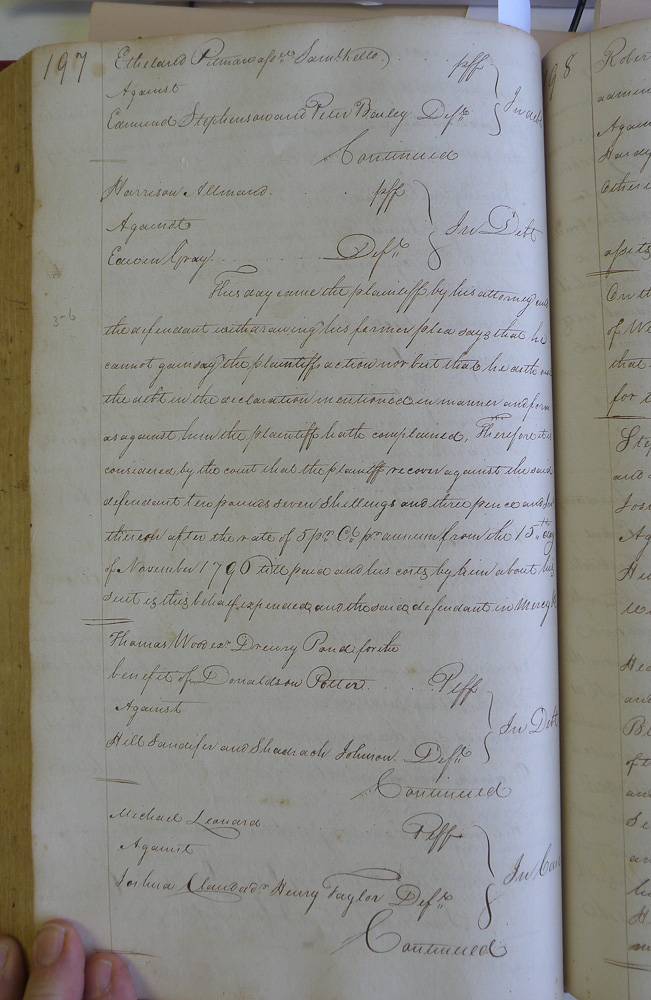 197
Ethelard Pitman assee Saml Kello pff
Against In debt
Edmund Stephenson and Peter Bailey Defts
Continued
Harrison Allmand pff
Against In Debt
Edwin Gray Deft
This day came the plaintiff by his attorney and
the defendant withdrawing his former plea says that he
cannot gainsay the plaintiffs action nor but that he doth owe
the debt in the declaration mentioned in manner and form
as against him the plaintiff hath complained, Therefore it is
considered by the court that the plaintiff recover against the said
defendant ten pounds seven shillings and three pence and Int
thereon after the rate of 5 pr Ct pr annum from the 15th day
of November 1790 till paid and his costs by him about his
suit in this behalf expended, and the said defendant in Mercy &
3-6
Thomas Wood exr Drewry Pond for the
benefit of Donaldson Potter Plff
Against In Debt
Hill Sandifer and Shadrach Johnson Defts
Continued
Michael Leonard Plff
Against In Case
Joshua Claud adr Henry Taylor Deft
Continued
198
Robert
admin
Again
Hardy
Other
assets
On th
of We
that
for t
Step
and
Josi
Ag
He
and
of th
and